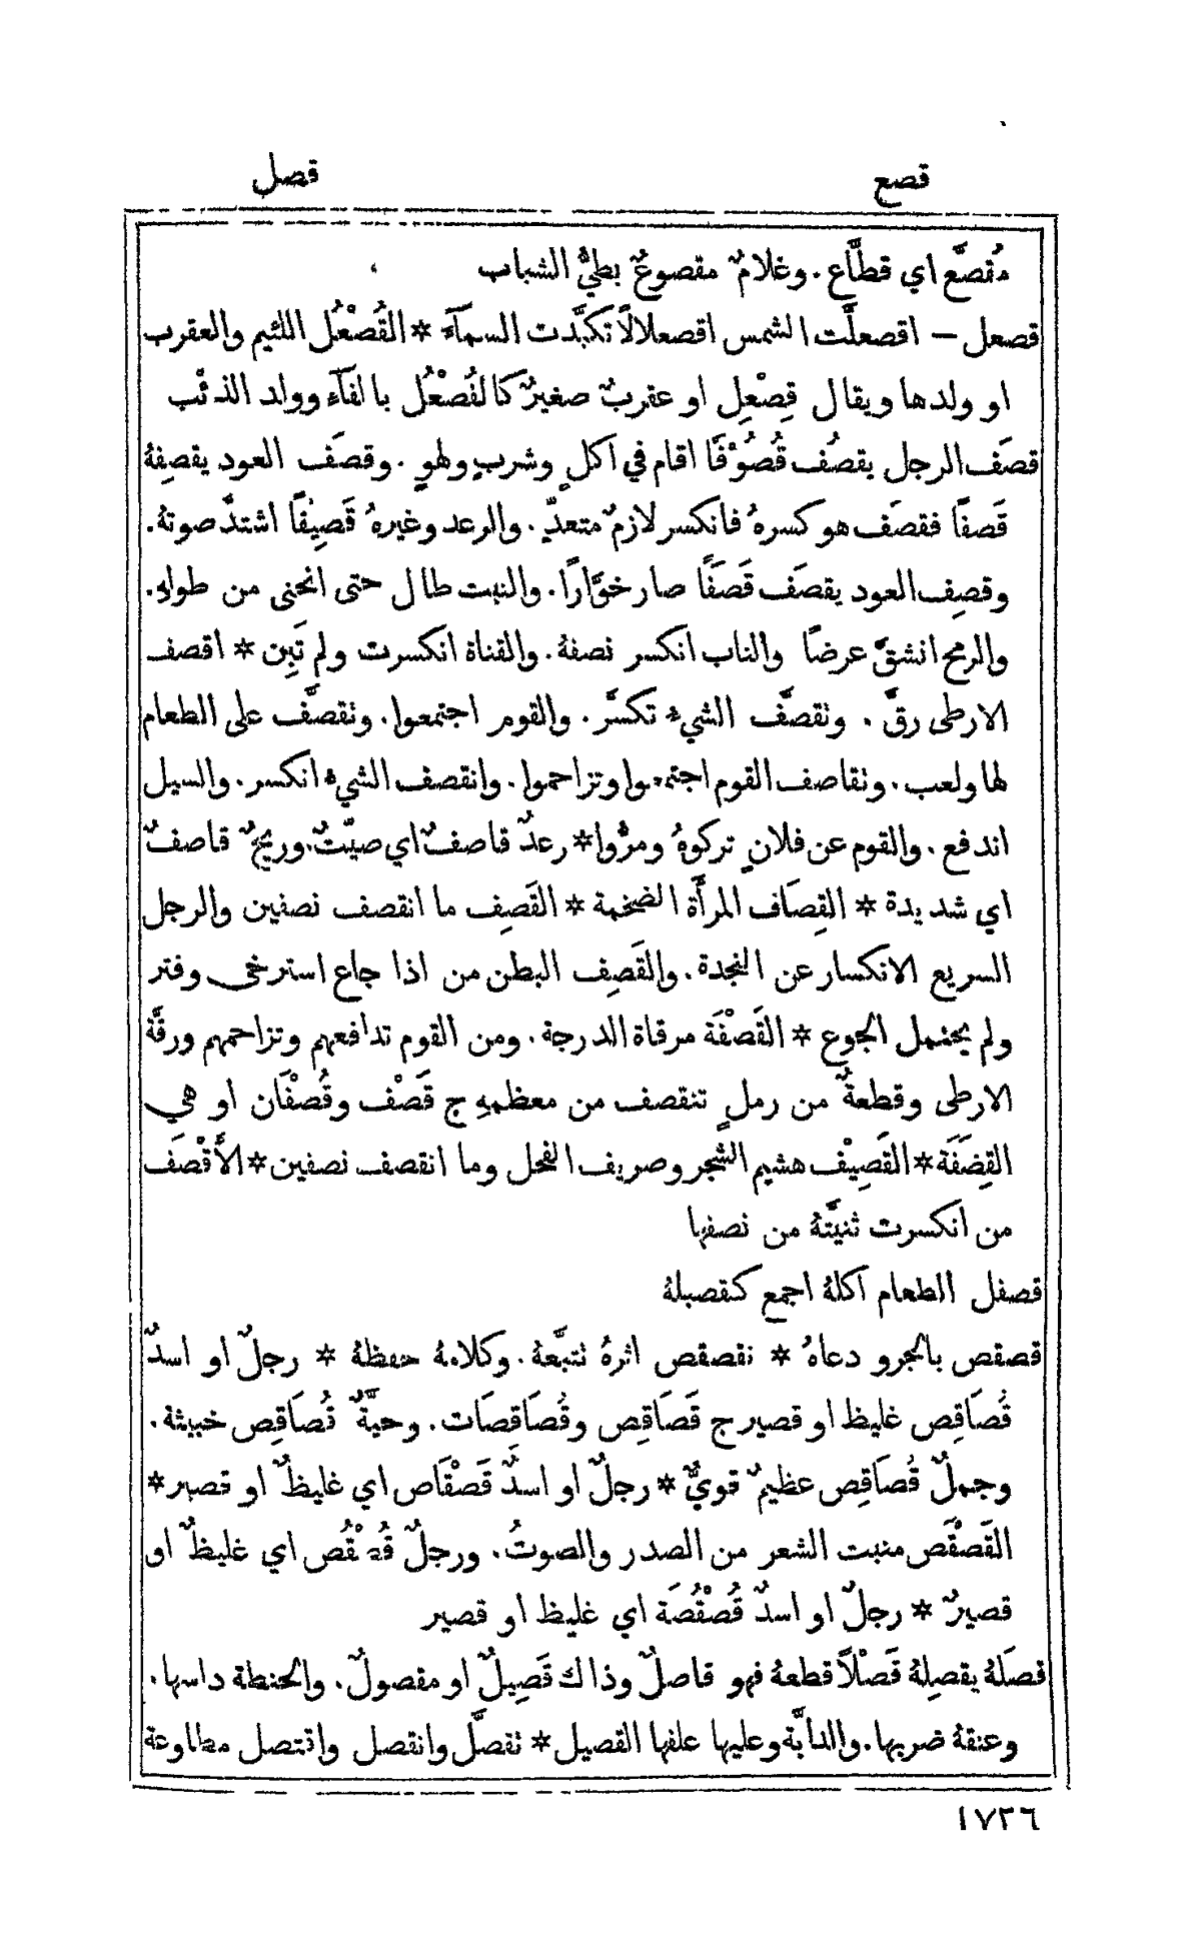 قصع
قصل
مُقصَّع اي قطَّاع. وغلامٌ مقصوعٌ بطيُّ الشباب
قصعل — اقصعلَّت الشمس اقصعلالًا تكبَّدت السمآء * القُصْعُل اللئيم والعقرب
او ولدها ويقال قِصْعِل او عقربٌ صغيرٌ كالفُصْعُل بالفآء وولد الذئب
قصَف الرجل يقصُف قُصُوْفًا اقام في اكلٍ وشربٍ ولهوٍ. وقصَف العود يقصِفهُ
قَصفًا فقصَف هو كسرهُ فانكسر لازمٌ متعدٍّ. والرعد وغيرهُ قَصِيْفًا اشتدَّ صوتهُ.
وقصِف العود يقصَف قَصَفًا صار خوَّارًا. والنبت طال حتى انحنى من طولهِ.
والرمح انشقَّ عرضًا والناب انكسر نصفهُ. والقناة انكسرت ولم تَبِن * اقصف
الارطى رقَّ. وتقصَّف الشيءُ تكسَّر. والقوم اجتمعوا. وتقصَّف على الطعام
لها ولعب. وتقاصف القوم اجتمعوا وتزاحموا. وانقصف الشيءُ انكسر. والسيل
اندفع. والقوم عن فلانٍ تركوهُ ومرُّوا * رعدٌ قاصفٌ اي صيّتٌ. وريحٌ قاصفٌ
اي شديدة * القِصَاف المرأَة الضخمة * القَصِف ما انقصف نصفين والرجل
السريع الانكسار عن النجدة. والقَصِف البطن من اذا جاع استرخى وفتر
ولم يحتمل الجوع * القَصْفَة مرقاة الدرجة. ومن القوم تدافعهم وتزاحمهم ورقَّة
الارطى وقطعةٌ من رملٍ تنقصف من معظمهِ ج قَصْف وقُصْفَان او هي
القِضَفَة * القَصِيْف هشيم الشجر وصريف الفحل وما انقصف نصفين * الأَقْصَف
من انكسرت ثنيَّتهُ من نصفها
قصفل الطعام اكلهُ اجمع كقصبلهُ
قصقص بالجرو دعاهُ * تقصقص اثرهُ تتبَّعهُ. وكلامهُ حفظهُ * رجلٌ او اسدٌ
قُصَاقِص غليظ او قصير ج قَصَاقِص وقُصَاقِصَات. وحيَّةٌ قُصَاقِص خبيثة.
وجملٌ قُصَاقِص عظيمٌ قويٌّ * رجلٌ او اسدٌ قَصْقَاص اي غليظٌ او قصير *
القَصْقَص منبت الشعر من الصدر والصوتُ. ورجلٌ قُصْقُص اي غليظٌ او
قصيرٌ * رجلٌ او اسدٌ قُصْقُصَة اي غليظ او قصير
قصَلهُ يقصِلهُ قَصْلًا قطعهُ فهو قاصلٌ وذاك قَصِيلٌ او مقصولٌ. والحنطة داسها.
وعنقهُ ضربها. والدابَّة وعليها علفها القصيل * تقصَّل وانقصل واقتصل مطاوعة
١٧٢٦